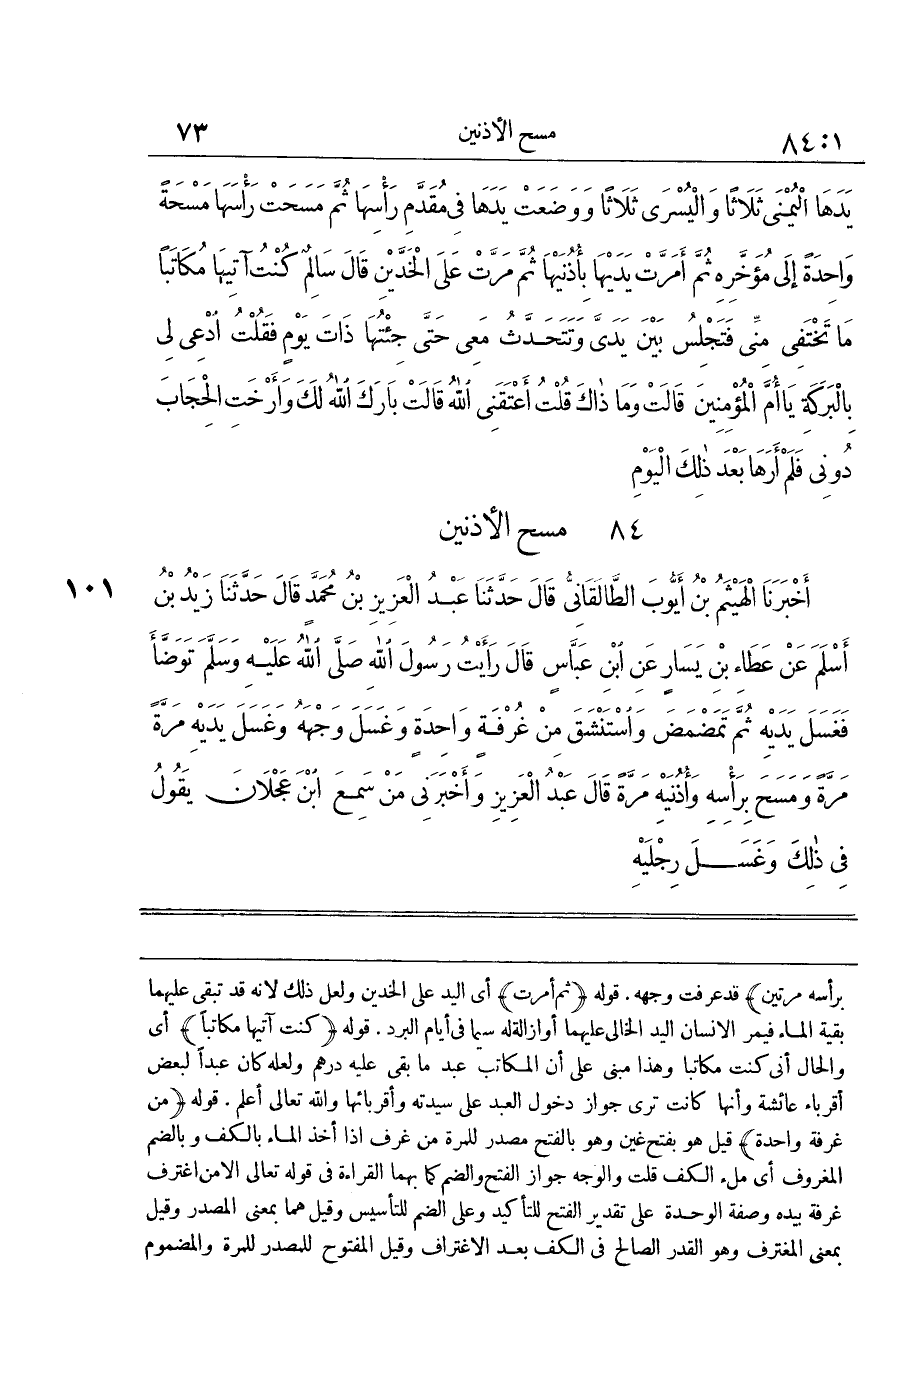 ٨٤:١ مسح الأذنين ٧٣
يَدَهَا الْيُمْنَى ثَلَاثًا وَالْيُسْرَى ثَلَاثًا وَوَضَعَتْ يَدَهَا فِى مُقَدَّمِ رَأْسِهَا ثُمَّ مَسَحَتْ رَأْسَهَا مَسْحَةً
وَاحِدَةً إِلَى مُؤَخَّرِهِ ثُمَّ أَمَرَّتْ يَدَيْهَا بِأُذُنَيْهَا ثُمَّ مَرَّتْ عَلَى الْخَدَّيْنِ قَالَ سَالِمٌ كُنْتُ آتِيهَا مُكَاتَبًا
مَا تَخْتَفِى مِنِّى فَتَجْلِسُ بَيْنَ يَدَىَّ وَتَتَحَدَّثُ مَعِى حَتَّى جِئْتُهَا ذَاتَ يَوْمٍ فَقُلْتُ اُدْعِى لِى
بِالْبَرَكَةِ يَاأُمَّ الْمُؤْمِنِينَ قَالَتْ وَمَا ذَاكَ قُلْتُ أَعْتَقَنِى اللهُ قَالَتْ بَارَكَ اللهُ لَكَ وَأَرْخَتِ الْحِجَابَ
دُونِى فَلَمْ أَرَهَا بَعْدَ ذٰلِكَ الْيَوْمِ
٨٤ مسح الأذنين
أَخْبَرَنَا الْهَيْثَمُ بْنُ أَيُّوبَ الطَّالَقَانِىُّ قَالَ حَدَّثَنَا عَبْدُ الْعَزِيزِ بْنُ مُحَمَّدٍ قَالَ حَدَّثَنَا زَيْدُ بْنُ ١٠١
أَسْلَمَ عَنْ عَطَاءِ بْنِ يَسَارٍ عَنِ ابْنِ عَبَّاسٍ قَالَ رَأَيْتُ رَسُولَ اللهِ صَلَّى اللهُ عَلَيْهِ وَسَلَّمَ تَوَضَّأَ
فَغَسَلَ يَدَيْهِ ثُمَّ تَمَضْمَضَ وَاسْتَنْشَقَ مِنْ غُرْفَةٍ وَاحِدَةٍ وَغَسَلَ وَجْهَهُ وَغَسَلَ يَدَيْهِ مَرَّةً
مَرَّةً وَمَسَحَ بِرَأْسِهِ وَأُذُنَيْهِ مَرَّةً قَالَ عَبْدُ الْعَزِيزِ وَأَخْبَرَنِى مَنْ سَمِعَ ابْنَ عَجْلَانَ يَقُولُ
فِى ذٰلِكَ وَغَسَلَ رِجْلَيْهِ
برأسه مرتين) قدعرفت وجهه. قوله (ثم أمرت) أى اليد على الخدين ولعل ذلك لانه قد تبقى عليهما
بقية الماء فيمر الانسان اليد الخالى عليهما أوازالقله سيما فى أيام البرد. قوله (كنت آتيها مكاتباً) أى
والحال أنى كنت مكاتبا وهذا مبنى على أن المكاتب عبد ما بقى عليه درهم ولعله كان عبداً لبعض
أقرباء عائشة وأنها كانت ترى جواز دخول العبد على سيدته وأقربائها والله تعالى أعلم. قوله (من
غرفة واحدة) قيل هو بفتح غين وهو بالفتح مصدر للمرة من غرف اذا أخذ الماء بالكف وبالضم
المغروف أى ملء الكف قلت والوجه جواز الفتح والضم كما بهما القراءة فى قوله تعالى الامن اغترف
غرفة بيده وصفة الوحدة على تقدير الفتح للتأكيد وعلى الضم للتأسيس وقيل هما بمعنى المصدر وقيل
بمعنى المغترف وهو القدر الصالح فى الكف بعد الاغتراف وقيل المفتوح للمصدر للمرة والمضموم